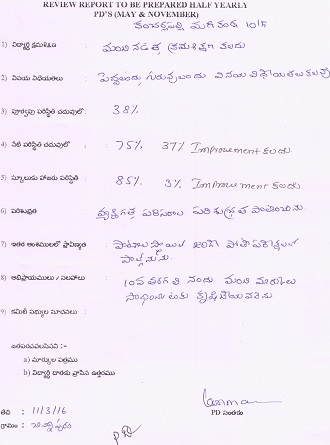 REVIEW REPORT TO BE PREPARED HALF YEARLY
PD'S (MAY & NOVEMBER)
10/F
1) విద్యార్థి క్రమశిక్షణ : మంచి నడత క్రమశిక్షణ కలదు
2) వినయ విధేయతలు : పెద్దలందు గురువులందు వినయ విధేయతలు కలవు
3) పూర్వపు పరిస్థితి చదువులో : 38%
4) నేటి పరిస్థితి చదువులో : 75% 37% Improvement కలదు
5) స్కూలుకు హాజరు పరిస్థితి : 85% 3% Improvement కలదు
6) పరిశుభ్రత : వ్యక్తిగత పరిసరాల పరిశుభ్రత పాటించును.
7) ఇతర అంశములలో ప్రావీణ్యత : పాఠశాల స్థాయిలో పోటీ
8) అభిప్రాయములు / సలహాలు : 10వ తరగతి నందు మంచి మార్కులు
సాధించుటకు కృషి చేయవలెను
9) కమిటీ సభ్యుల సూచనలు :
జతపరచవలసినవి :-
a) మార్కుల పత్రము
b) విద్యార్థి దాతకు వ్రాసిన ఉత్తరము
PD సంతకం
తేది : 11/3/16
గ్రామం :